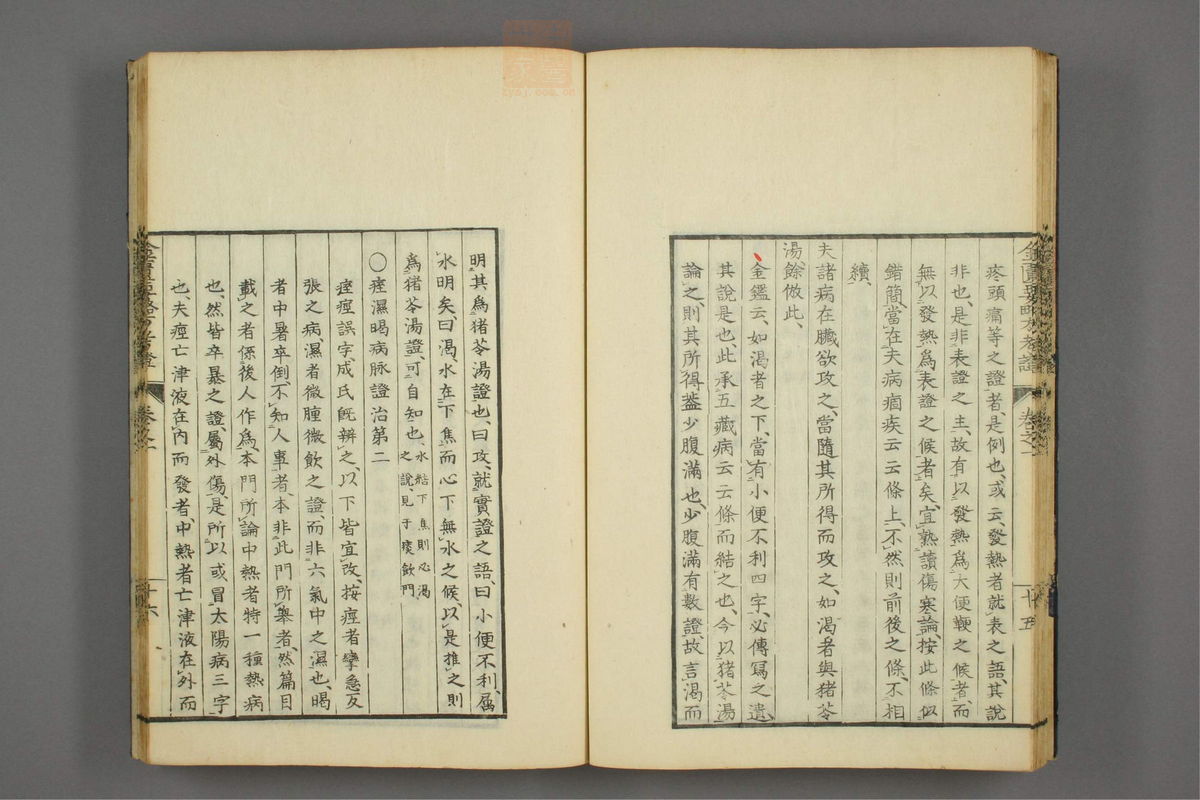 疼頭痛等之證者是例也或云發熱者就表之語其說
非也是非表證之主故有以發熱爲大便鞕之候者而
無以發熱爲表證之候者矣宜熟讀傷寒論按此條似
錯簡當在夫病痼疾云云條上不然則前後之條不相
續
夫諸病在臟欲攻之當隨其所得而攻之如渴者與猪苓
湯餘倣此
金鑑云如渴者之下當有小便不利四字必傳寫之遺
其說是也此承五藏病云云條而結之也今以猪苓湯
論之則其所得葢少腹滿也少腹滿有數證故言渴而
金匱要畧方考證
卷之一
十五
明其爲猪苓湯證也曰攻就實證之語曰小便不利屬
水明矣曰渴水在下焦而心下無水之候以是推之則
爲猪苓湯證可自知也水結下焦則必渴
之說見于痰飮門
〇痙濕暍病脉證治第二
痓痙誤字成氏旣辨之以下皆宜改按痙者攣急反
張之病濕者微腫微飮之證而非六氣中之濕也暍
者中暑卒倒不知人事者本非此門所擧者然篇目
載之者係後人作爲本門所論中熱者特一種熱病
也然皆卒暴之證屬外傷是所以或冒太陽病三字
也夫痙亡津液在內而發者中熱者亡津液在外而
金匱要畧方考證
卷之一
十六